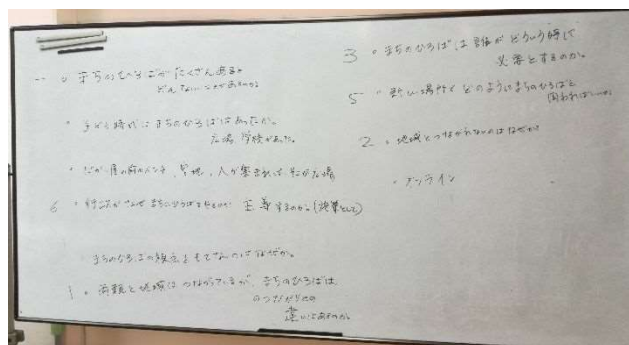 まちのひろばがたくさんあると
どんないいことがあるのか
子ども時代にまちのひろばはあったか。
広場、学校があった。
だがし屋の前のベンチ、空地、人が集まれば、そこが広場
6 行政がなぜまちのひろばを
主導するのか。(施策として)
まちのひろばの視点をもてないのはなぜか。
1 両親と地域はつながっているが、まちのひろばは
のつながりとの
違いはあるのか
3 まちのひろばは誰がどういう時に
必要とするのか。
5 新しい場所とどのようにまちのひろばと
関わればいいか
2 地域とつながれないのはなぜか
オンライン